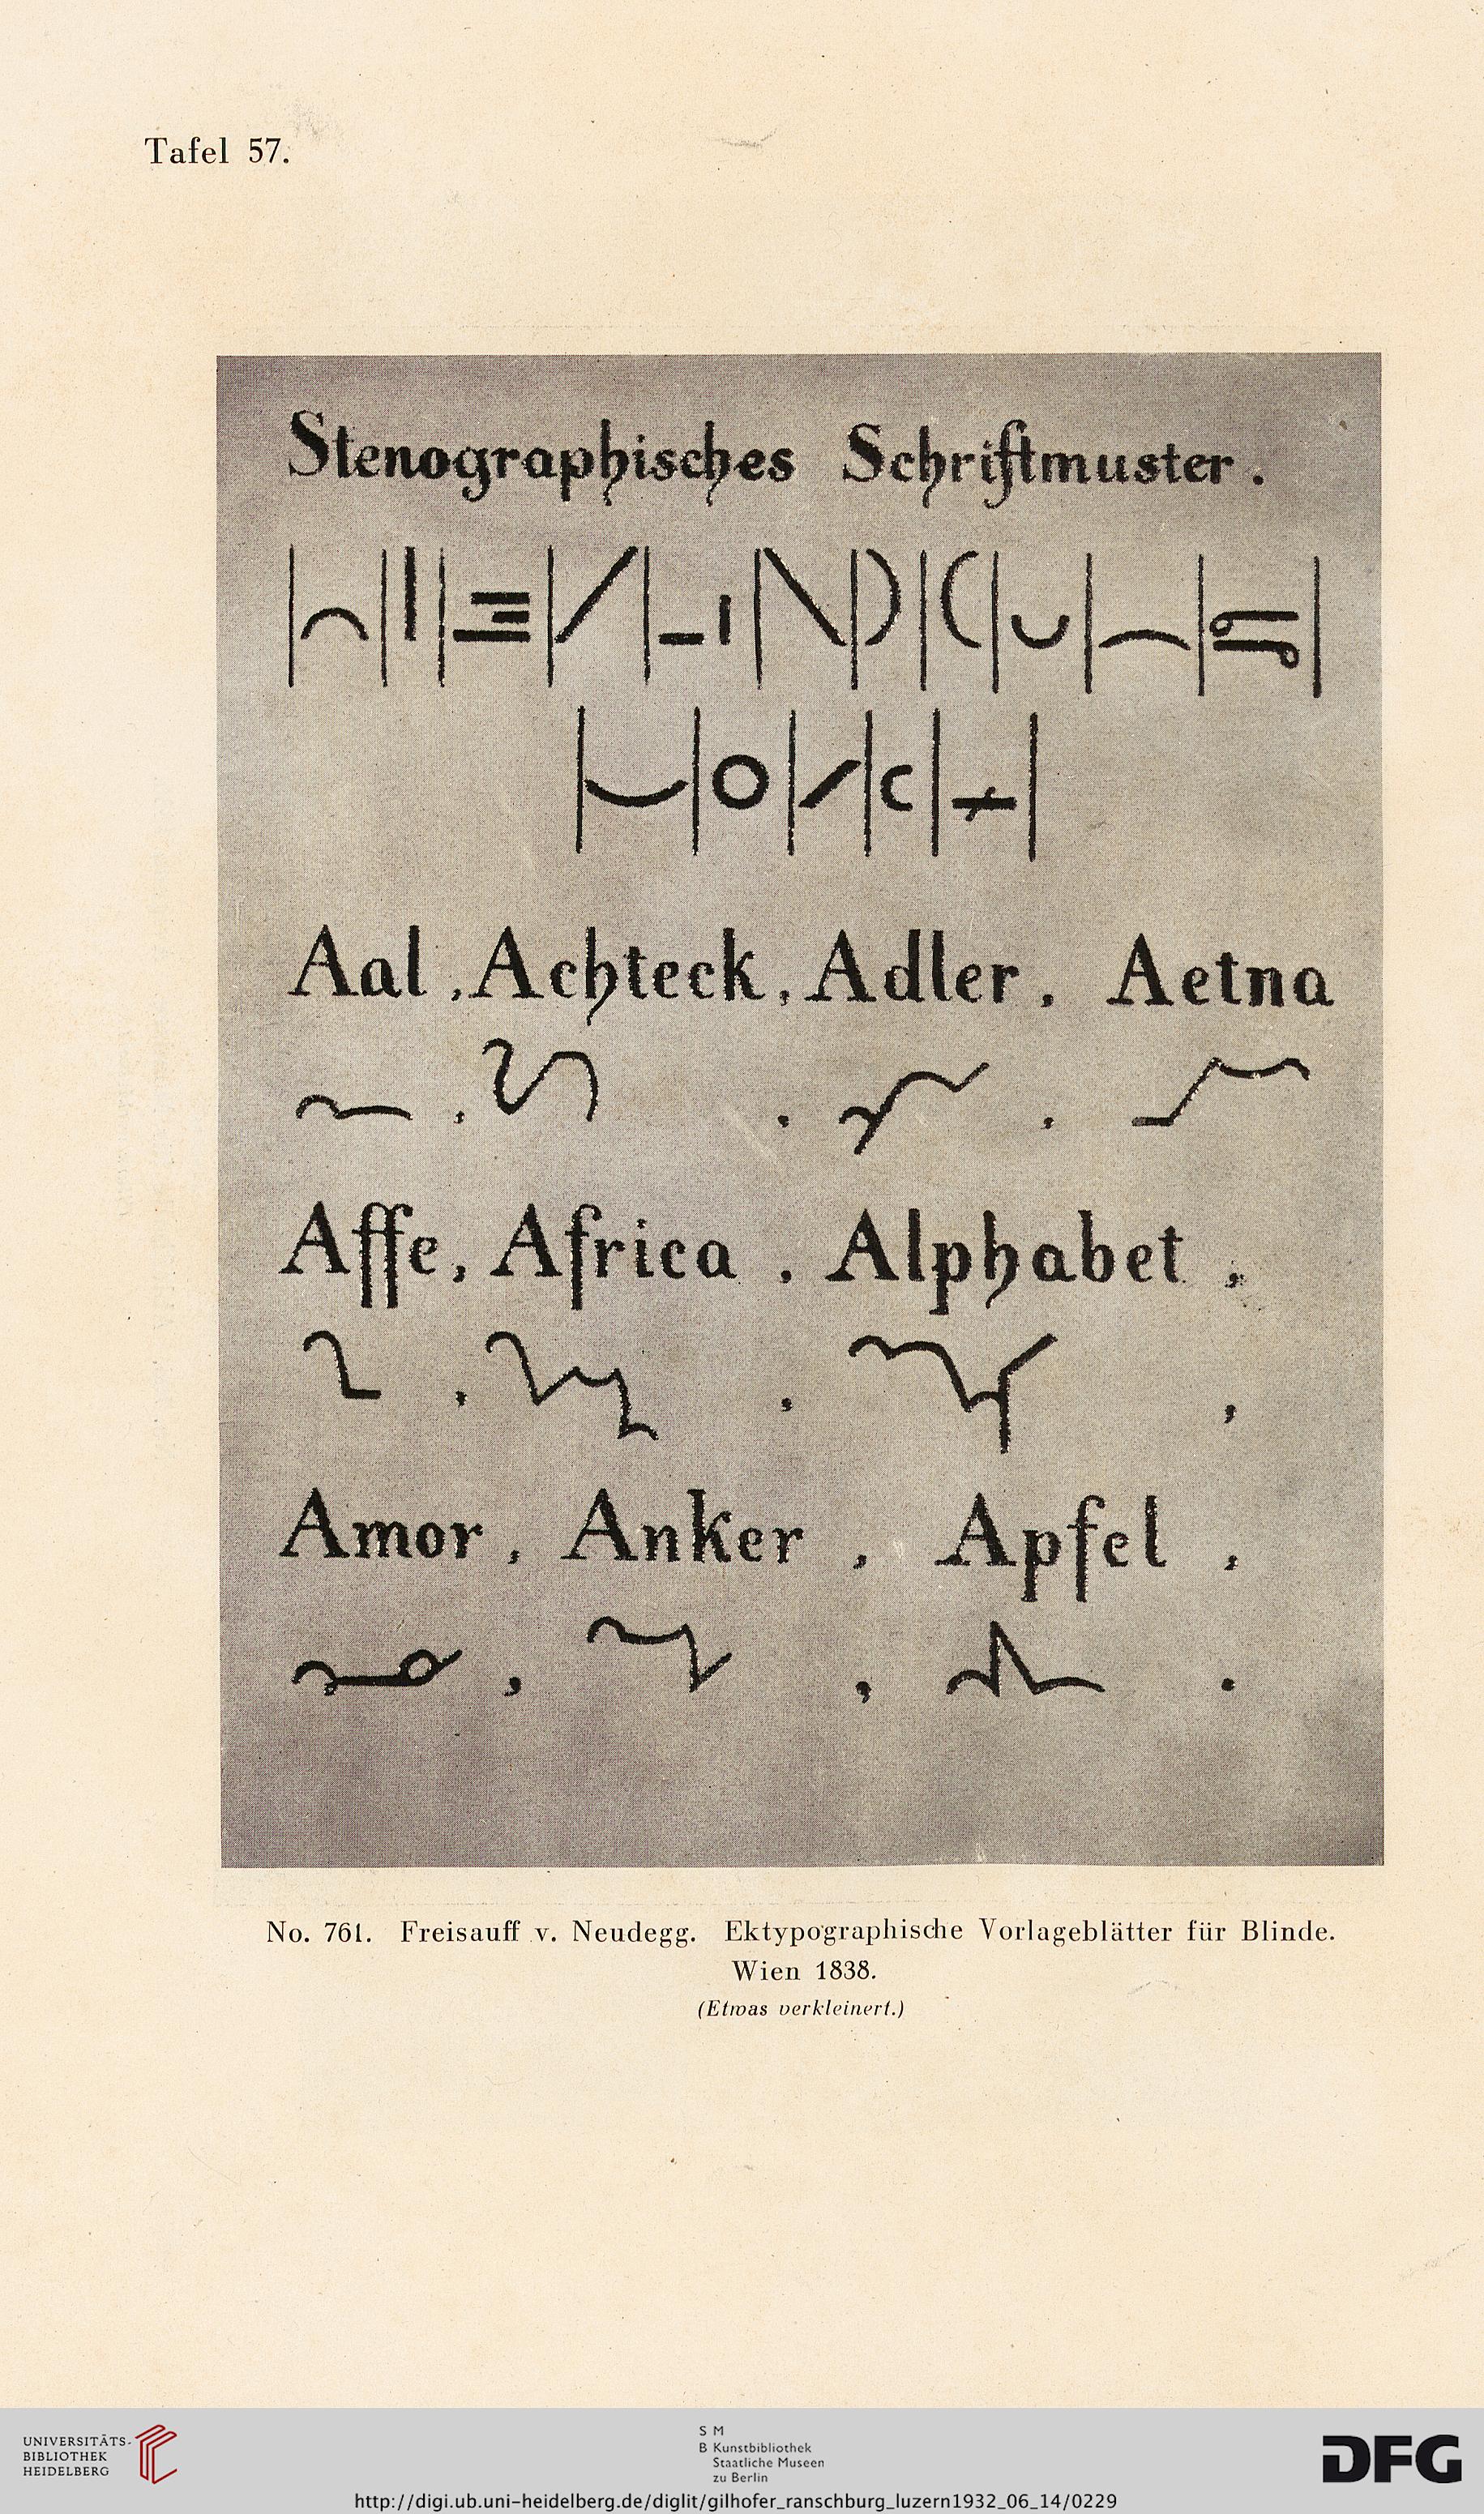 Tafel 57.
Stenographisches Schriftmuster.
Aal, Achteck, Adler, Aetna
Affe, Africa, Alphabet,
Amor, Anker, Apfel,
No. 761. Freisauff v. Neudegg. Ektypographische Vorlageblätter für Blinde.
Wien 1838.
(Etwas verkleinert.)
UNIVERSITÄTS-
BIBLIOTHEK
HEIDELBERG
S M
B Kunstbibliothek
Staatliche Museen
zu Berlin
DFG
http://digi.ub.uni-heidelberg.de/diglit/gilhofer_ranschburg_luzern1932_06_14/0229